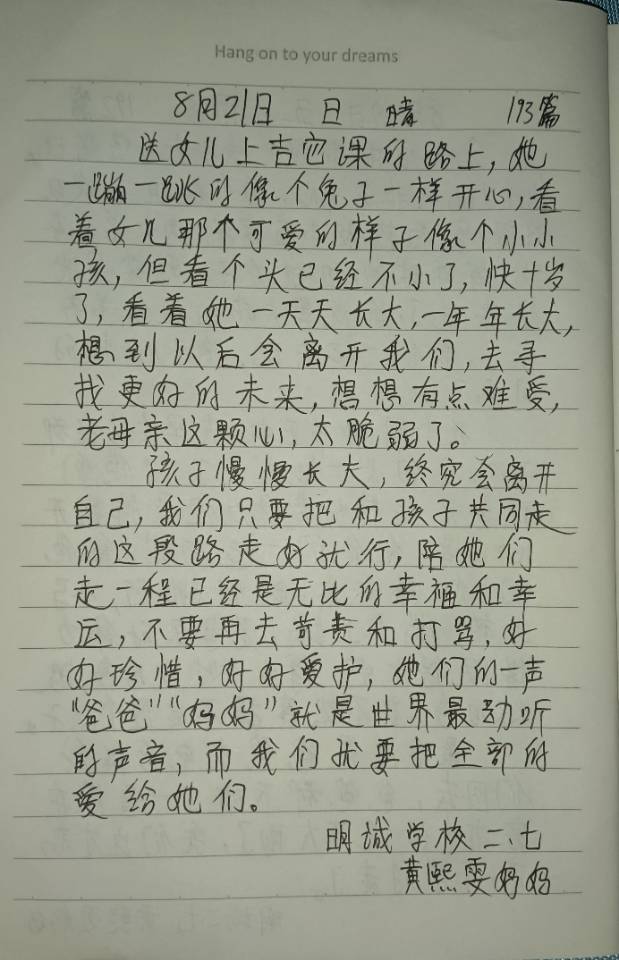 Hang on to your dreams
8月21日 日 晴 193篇
送女儿上吉它课的路上,她
一蹦一跳的像个兔子一样开心,看
着女儿那个可爱的样子像个小小
孩,但看个头已经不小了,快十岁
了,看着她一天天长大,一年年长大,
想到以后会离开我们,去寻
找更好的未来,想想有点难受,
老母亲这颗心,太脆弱了。
孩子慢慢长大,终究会离开
自己,我们只要把和孩子共同走
的这段路走好就行,陪她们
走一程已经是无比的幸福和幸
运,不要再去苛责和打骂,好
好珍惜,好好爱护,她们的一声
“爸爸”“妈妈”就是世界最动听
的声音,而我们就要把全部的
爱给她们。
明诚学校二、七
黄熙雯妈妈